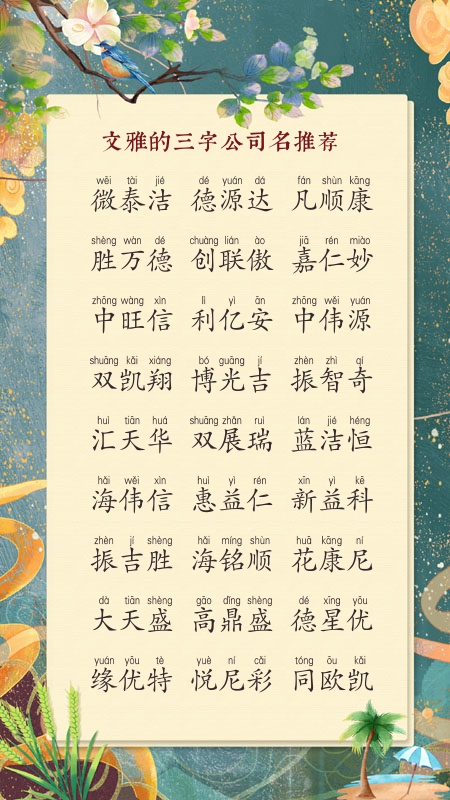 文雅的三字公司名推荐
wēi tài jié dé yuán dá fán shùn kāng
微泰洁 德源达 凡顺康
shèng wàn dé chuàng lián ào jiā rén miào
胜万德 创联傲 嘉仁妙
zhōng wàng xìn lì yì ān zhōng wěi yuán
中旺信 利亿安 中伟源
shuāng kǎi xiáng bó guāng jí zhèn zhì qí
双凯翔 博光吉 振智奇
huì tiān huá shuāng zhǎn ruì lán jié héng
汇天华 双展瑞 蓝洁恒
hǎi wěi xìn huì yì rén xīn yì kē
海伟信 惠益仁 新益科
zhèn jí shèng hǎi míng shùn huā kāng ní
振吉胜 海铭顺 花康尼
dà tiān shèng gāo dǐng shèng dé xīng yōu
大天盛 高鼎盛 德星优
yuán yōu tè yuè ní cǎi tóng ōu kǎi
缘优特 悦尼彩 同欧凯